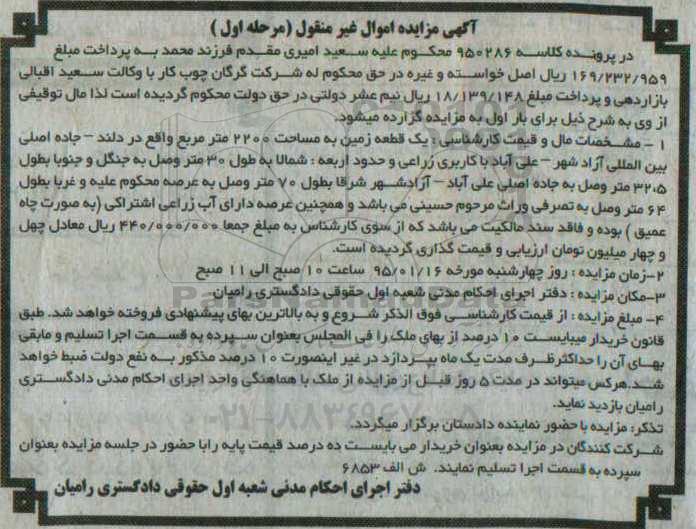 آگهی مزایده اموال غیر منقول (مرحله اول)
در پرونده کلاسه ۹۵۰۲۸۶ محکوم علیه سعید امیری مقدم فرزند محمد به پرداخت مبلغ
۱۶۹/۲۳۲/۹۵۹ ریال اصل خواسته و غیره در حق محکوم له شرکت گرگان چوب کار با وکالت سعید اقبالی
بازاردهی و پرداخت مبلغ ۱۸/۱۳۹/۱۴۸ ریال نیم عشر دولتی در حق دولت محکوم گردیده است لذا مال توقیفی
از وی به شرح ذیل برای بار اول به مزایده گزارده میشود.
۱ – مشخصات مال و قیمت کارشناسی : یک قطعه زمین به مساحت ۲۲۰۰ متر مربع واقع در دلند – جاده اصلی
بین المللی آزاد شهر – علی آباد با کاربری زراعی و حدود اربعه : شمالا به طول ۳۰ متر وصل به جنگل و جنوبا بطول
۳۲.۵ متر وصل به جاده اصلی علی آباد – آزادشهر شرقا بطول ۷۰ متر وصل به عرصه محکوم علیه و غربا بطول
۶۴ متر وصل به تصرفی وراث مرحوم حسینی می باشد و همچنین عرصه دارای آب زراعی اشتراکی (به صورت چاه
عمیق ) بوده و فاقد سند مالکیت می باشد که از سوی کارشناس به مبلغ جمعا ۴۴۰/۰۰۰/۰۰۰ ریال معادل چهل
و چهار میلیون تومان ارزیابی و قیمت گذاری گردیده است.
۲-زمان مزایده : روز چهارشنبه مورخه ۹۵/۰۱/۱۶ ساعت ۱۰ صبح الی ۱۱ صبح
۳-مکان مزایده : دفتر اجرای احکام مدنی شعبه اول حقوقی دادگستری رامیان
۴- مبلغ مزایده : از قیمت کارشناسی فوق الذکر شروع و به بالاترین بهای پیشنهادی فروخته خواهد شد. طبق
قانون خریدار میبایست ۱۰ درصد از بهای ملک را فی المجلس بعنوان سپرده به قسمت اجرا تسلیم و مابقی
بهای آن را حداکثرظرف مدت یک ماه بپردازد در غیر اینصورت ۱۰ درصد مذکور به نفع دولت ضبط خواهد
شد.هرکس میتواند در مدت ۵ روز قبل از مزایده از ملک با هماهنگی واحد اجرای احکام مدنی دادگستری
رامیان بازدید نماید.
تذکر: مزایده با حضور نماینده دادستان برگزار میگردد.
شرکت کنندگان در مزایده بعنوان خریدار می بایست ده درصد قیمت پایه رابا حضور در جلسه مزایده بعنوان
سپرده به قسمت اجرا تسلیم نمایند. ش الف ۶۸۵۳
دفتر اجرای احکام مدنی شعبه اول حقوقی دادگستری رامیان